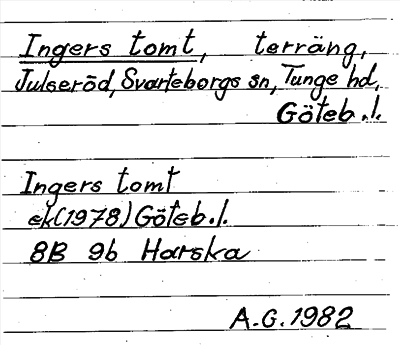 Ingers tomt, terräng,
Julseröd, Svarteborgs sn, Tunge hd,
Göteb.l.
Ingers tomt
ek(1978) Göteb.l.
8B 9b Harska
A.G. 1982